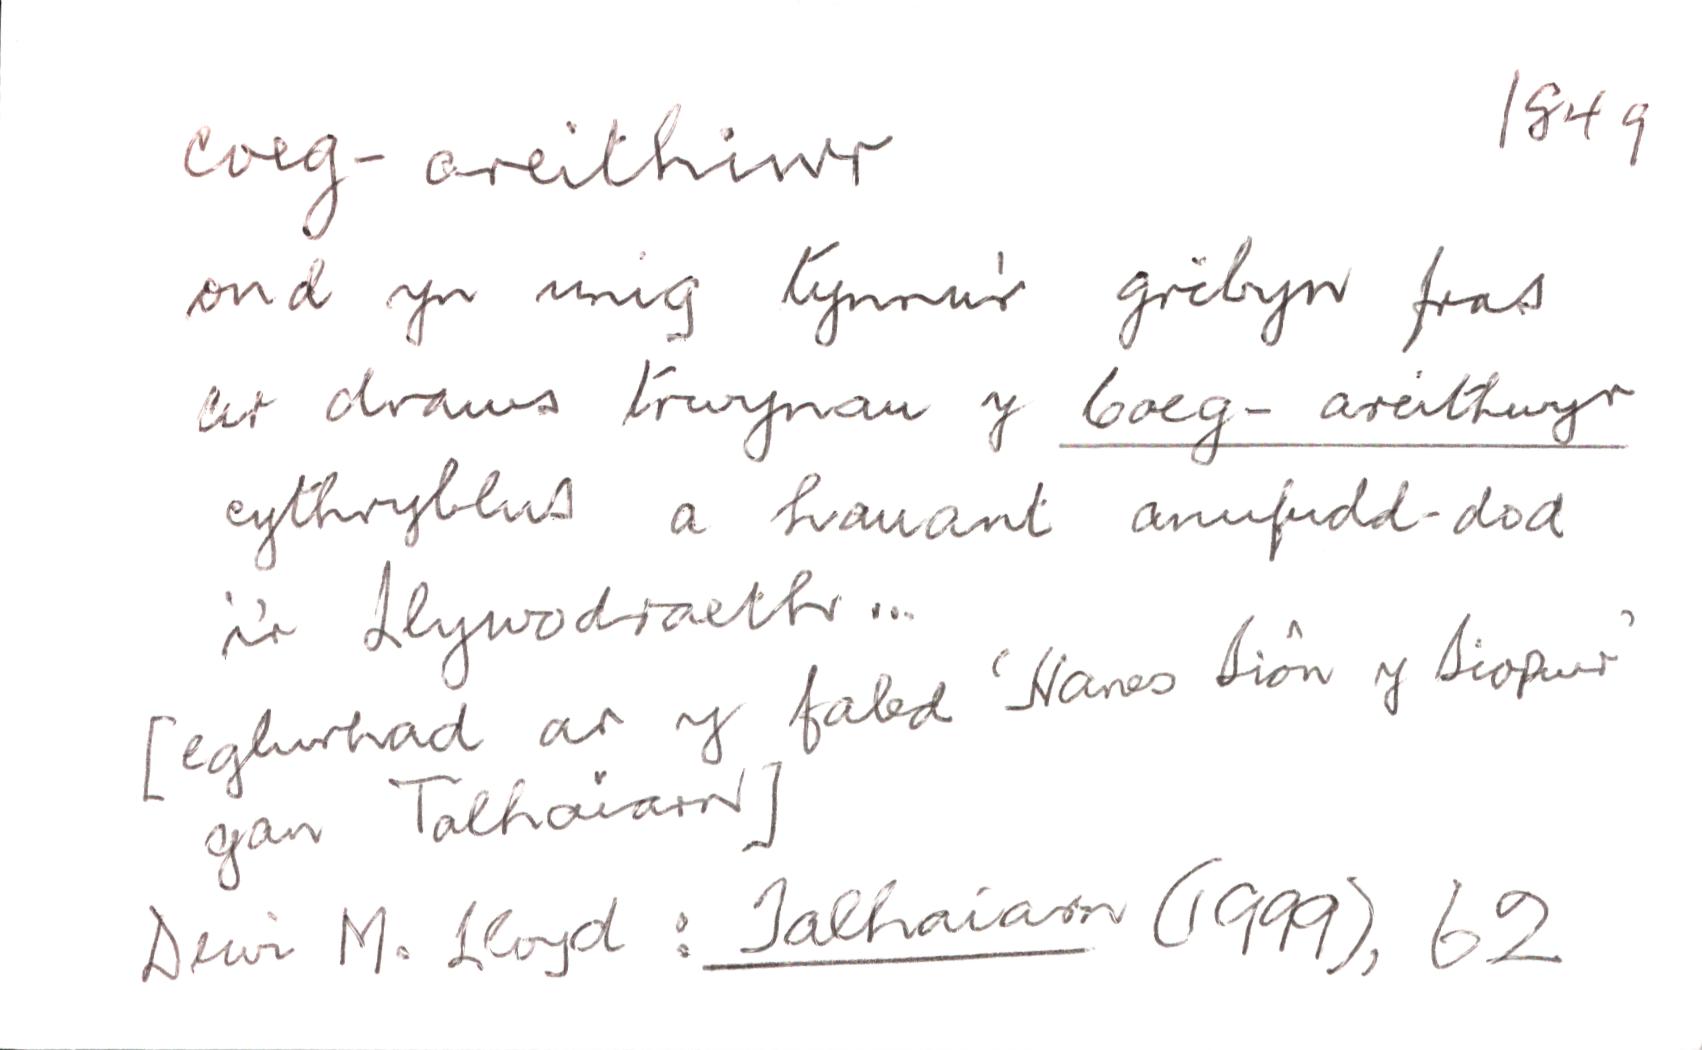 1849
coeg-areithiwr
ond yn unig tynnu'r grïbyn fras
ar draws trwynau y Coeg-areithwyr
cythryblus a hauant anufudd-dod
i'r Llywodraeth...
[eglurhad ar y faled 'Hanes Siôn y Siopwr'
gan Talhaiarn]
Dewi M. Lloyd : Talhaiarn (1999), 62